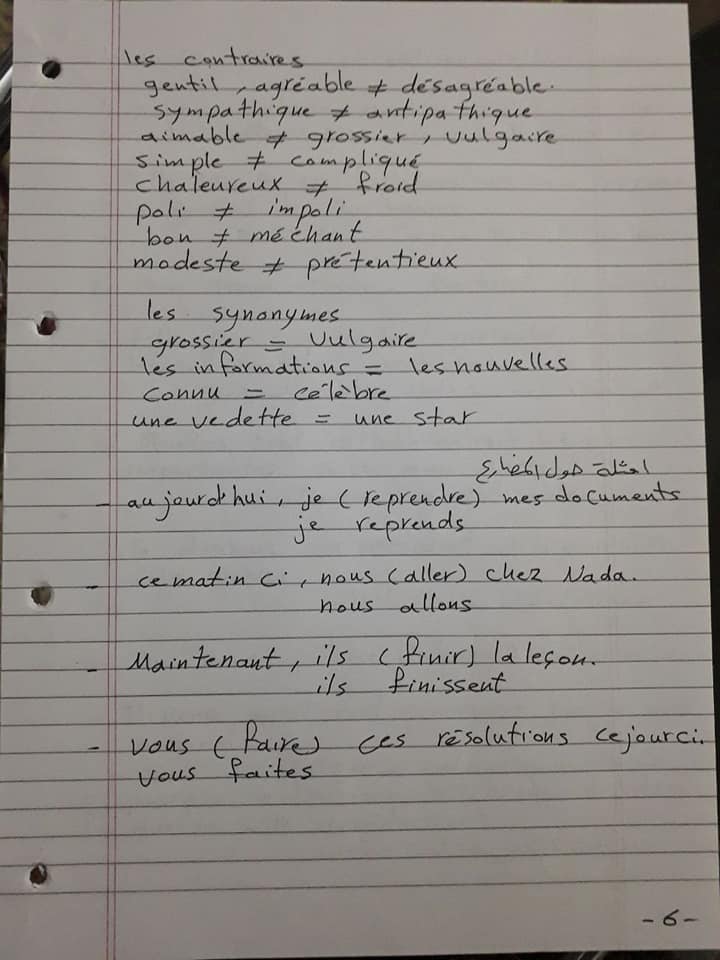 les contraires
gentil, agréable ≠ désagréable.
sympathique ≠ antipathique
aimable ≠ grossier, vulgaire
simple ≠ compliqué
chaleureux ≠ froid
poli ≠ impoli
bon ≠ méchant
modeste ≠ prétentieux
les synonymes
grossier = vulgaire
les informations = les nouvelles
connu = célèbre
une vedette = une star
امثلة حول المضارع
- aujourd'hui, je (reprendre) mes documents
je reprends
- ce matin ci, nous (aller) chez Nada.
nous allons
- Maintenant, ils (finir) la leçon.
ils finissent
- vous (faire) ces résolutions ce jour ci.
vous faites
- 6 -